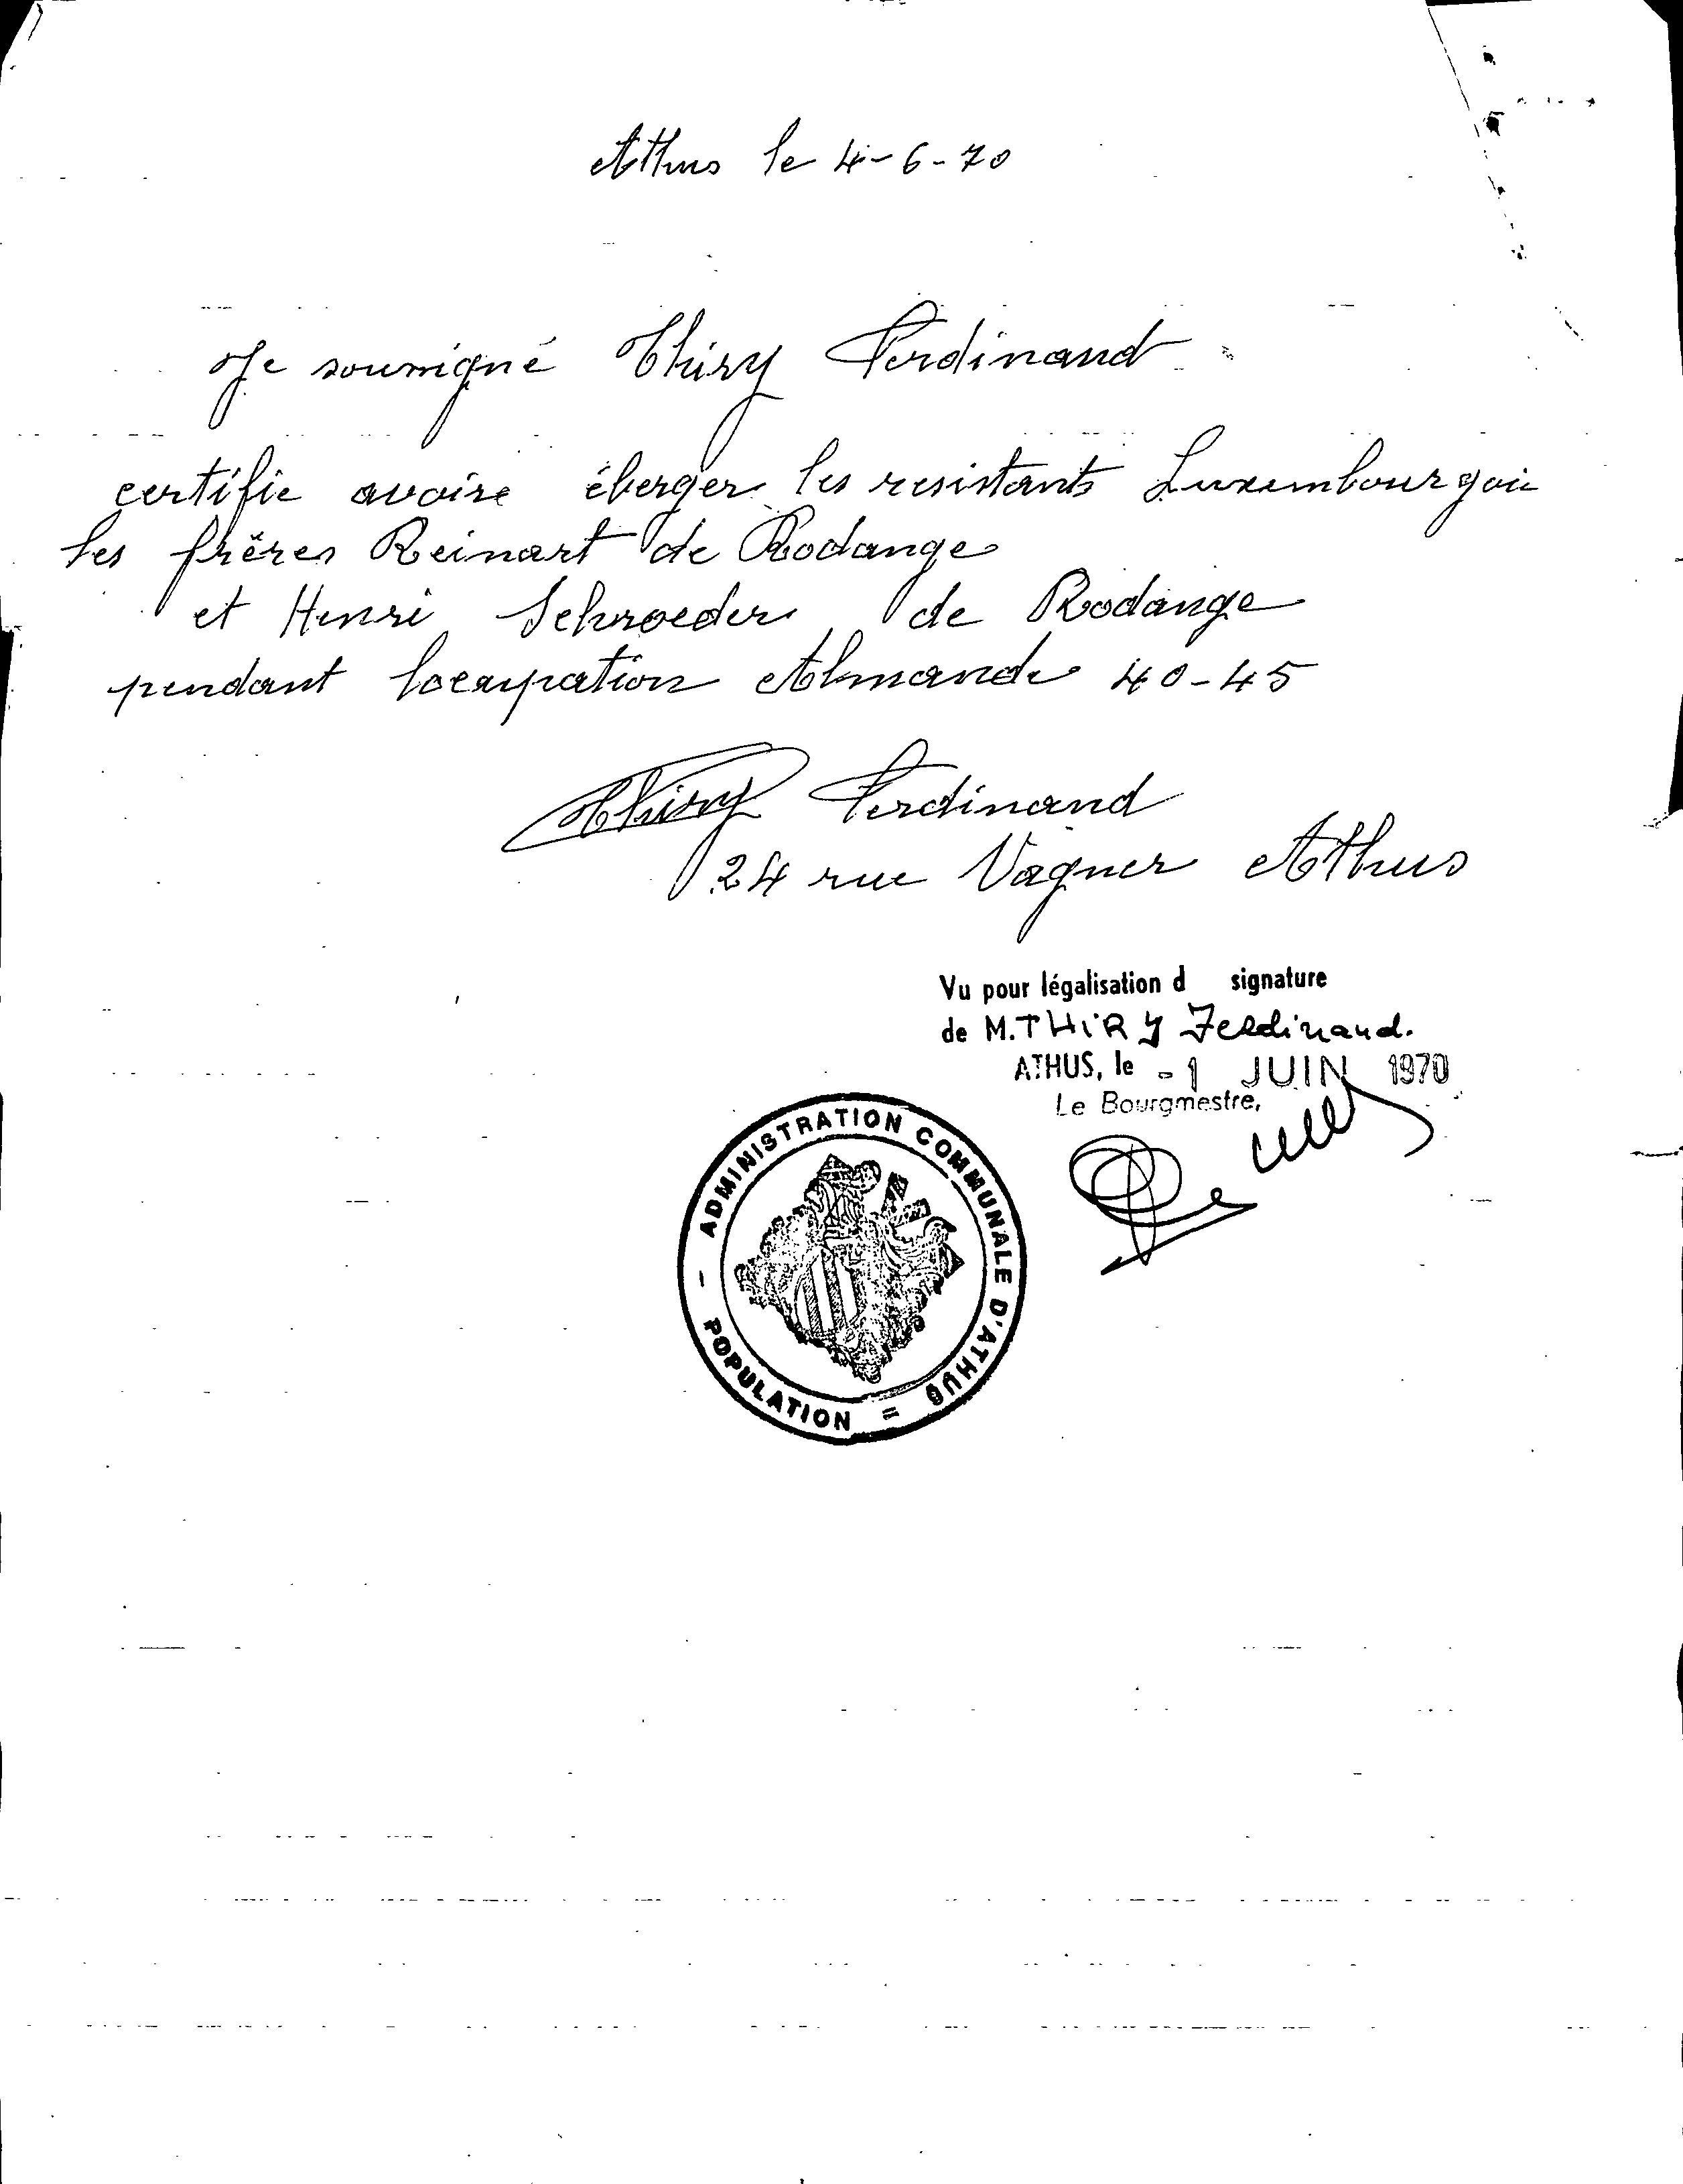 Athus le 4-6-70
Je soumigné Thiry Ferdinand
certifie avoire éberger les resistants Luxembourgois
les frères Reinart de Rodange
et Henri Schroeder de Rodange
pendant locaupation Almande 40-45
Thiry Ferdinand
24 rue Vagner Athus
Vu pour légalisation d signature
de M. THIRY Ferdinand.
ATHUS, le - 1 JUIN 1970
Le Bourgmestre,
ADMINISTRATION COMMUNALE D'ATHUS
- POPULATION =